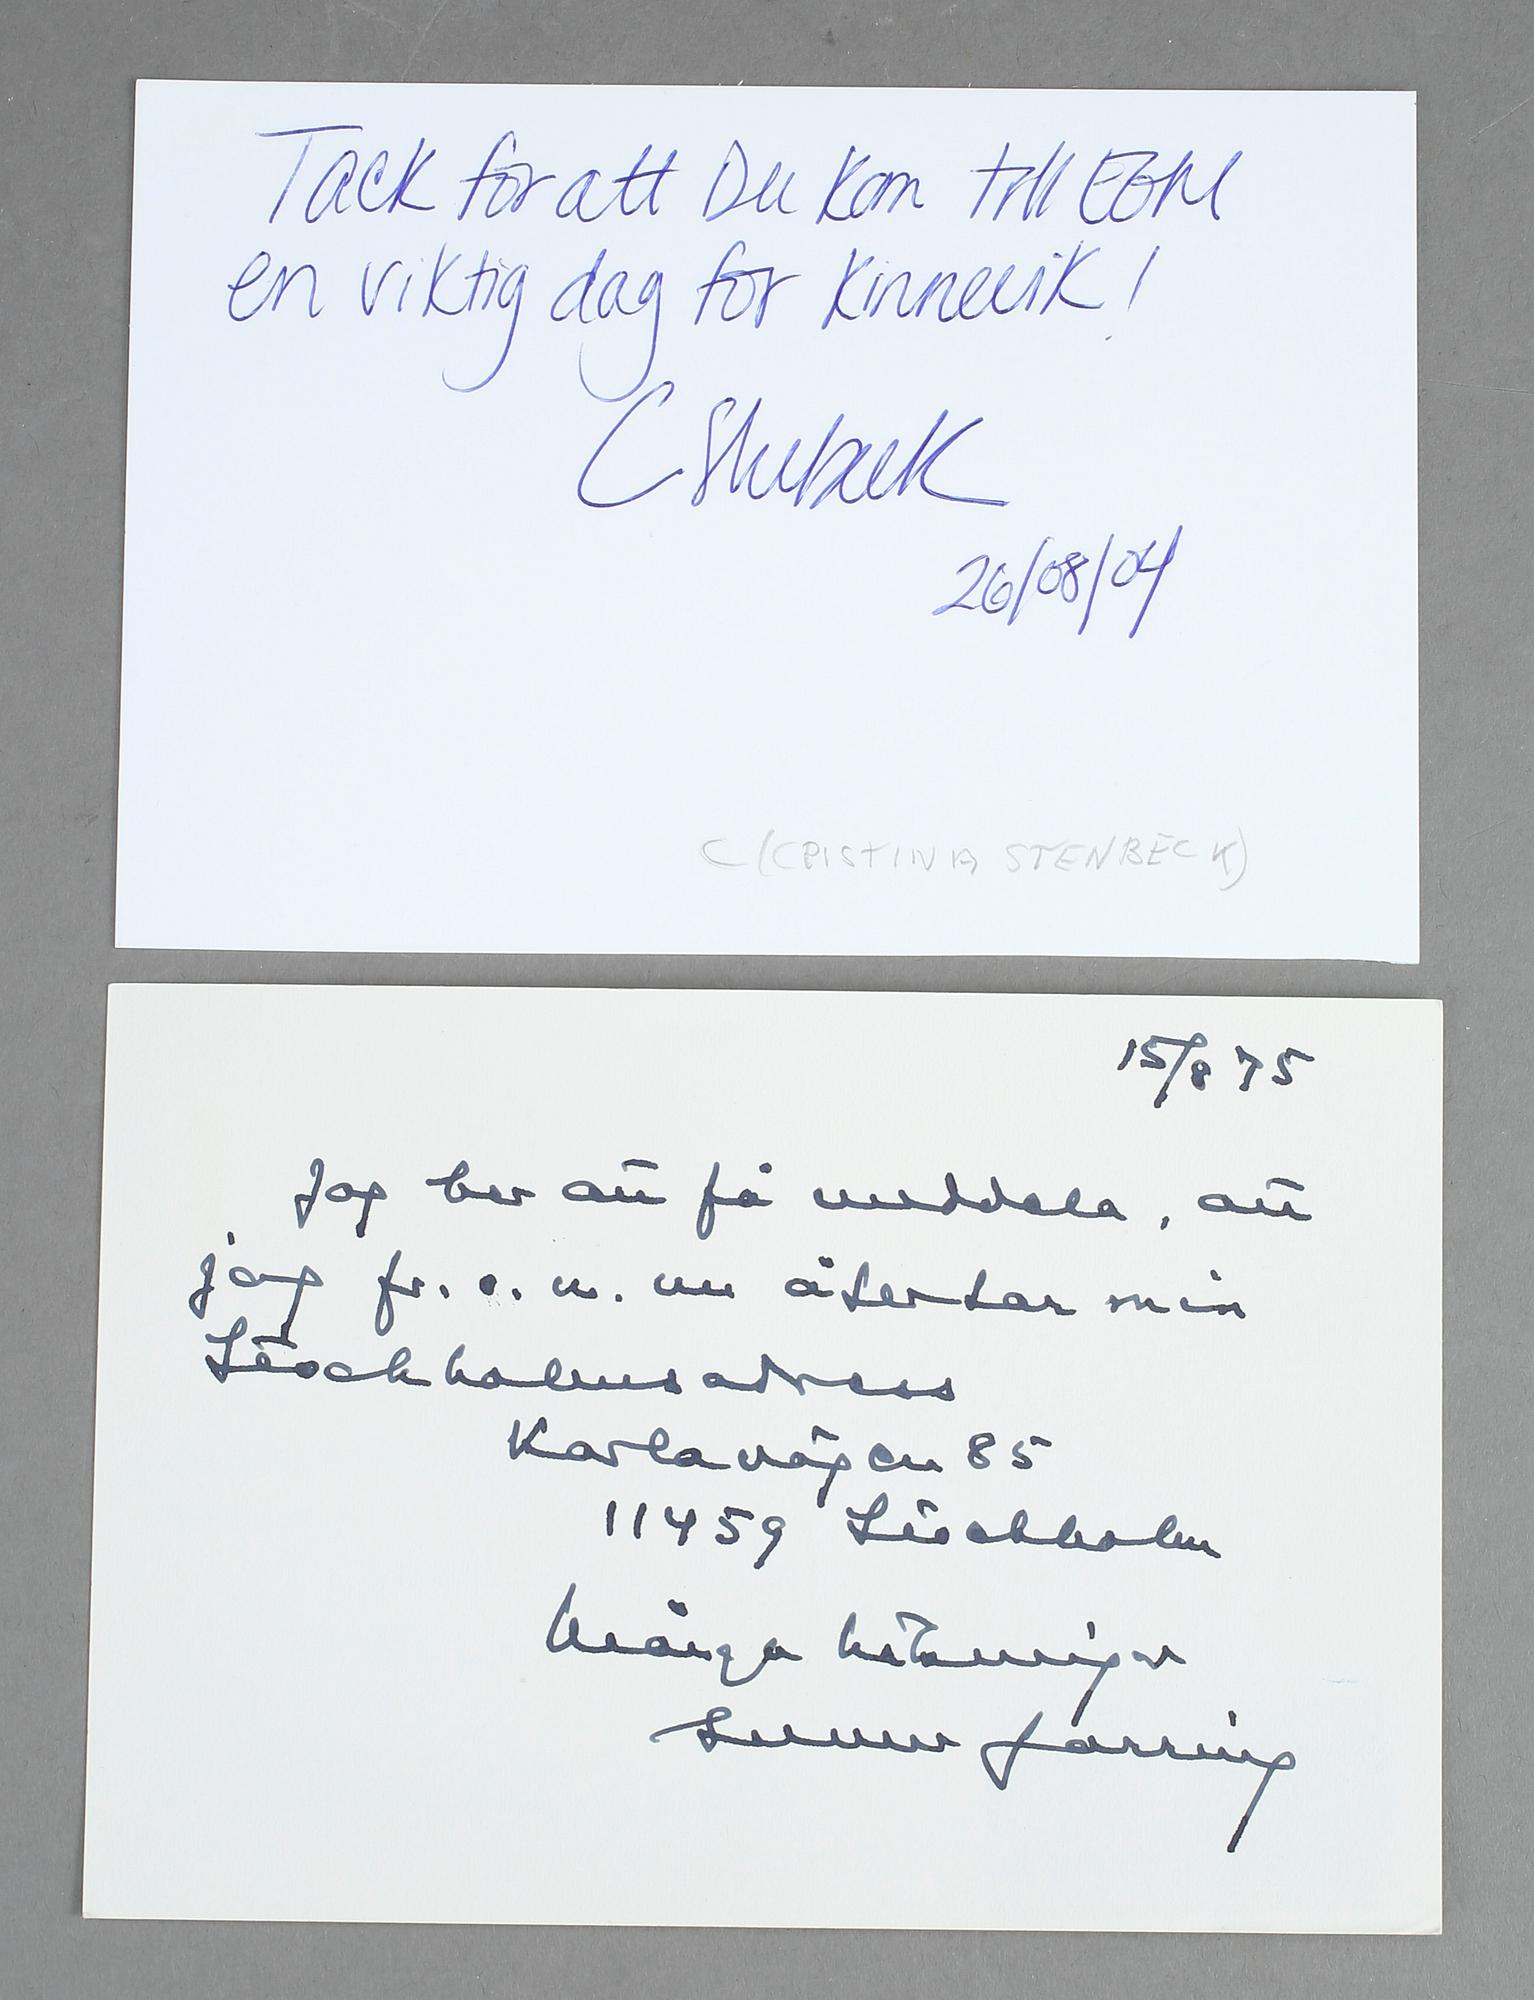 Tack för att Du kom till EGM
en viktig dag för Kinnevik!
C Stenbeck
26/08/04
C (CRISTINA STENBECK)
15/8 75
Jag ber att få meddela, att
jag fr. o. m. nu återtar min
Stockholmsadress
Karlavägen 85
11459 Stockholm
Många hälsningar
Gunnar Jarring